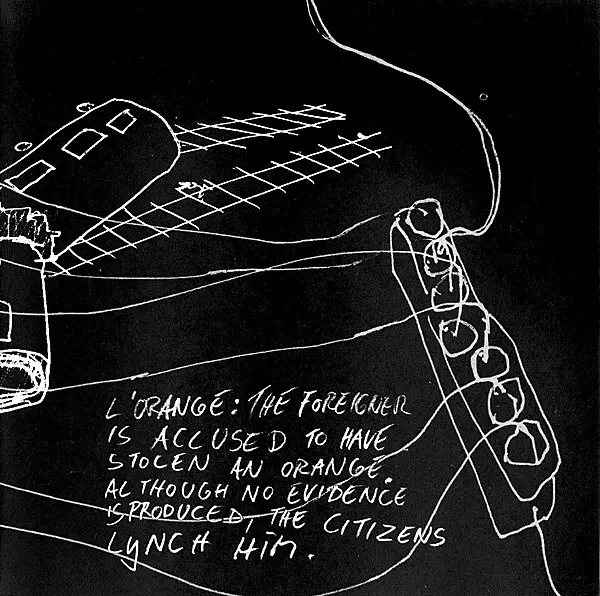 L'ORANGE: THE FOREIGNER
IS ACCUSED TO HAVE
STOLEN AN ORANGE.
ALTHOUGH NO EVIDENCE
IS PRODUCED, THE CITIZENS
LYNCH HIM.